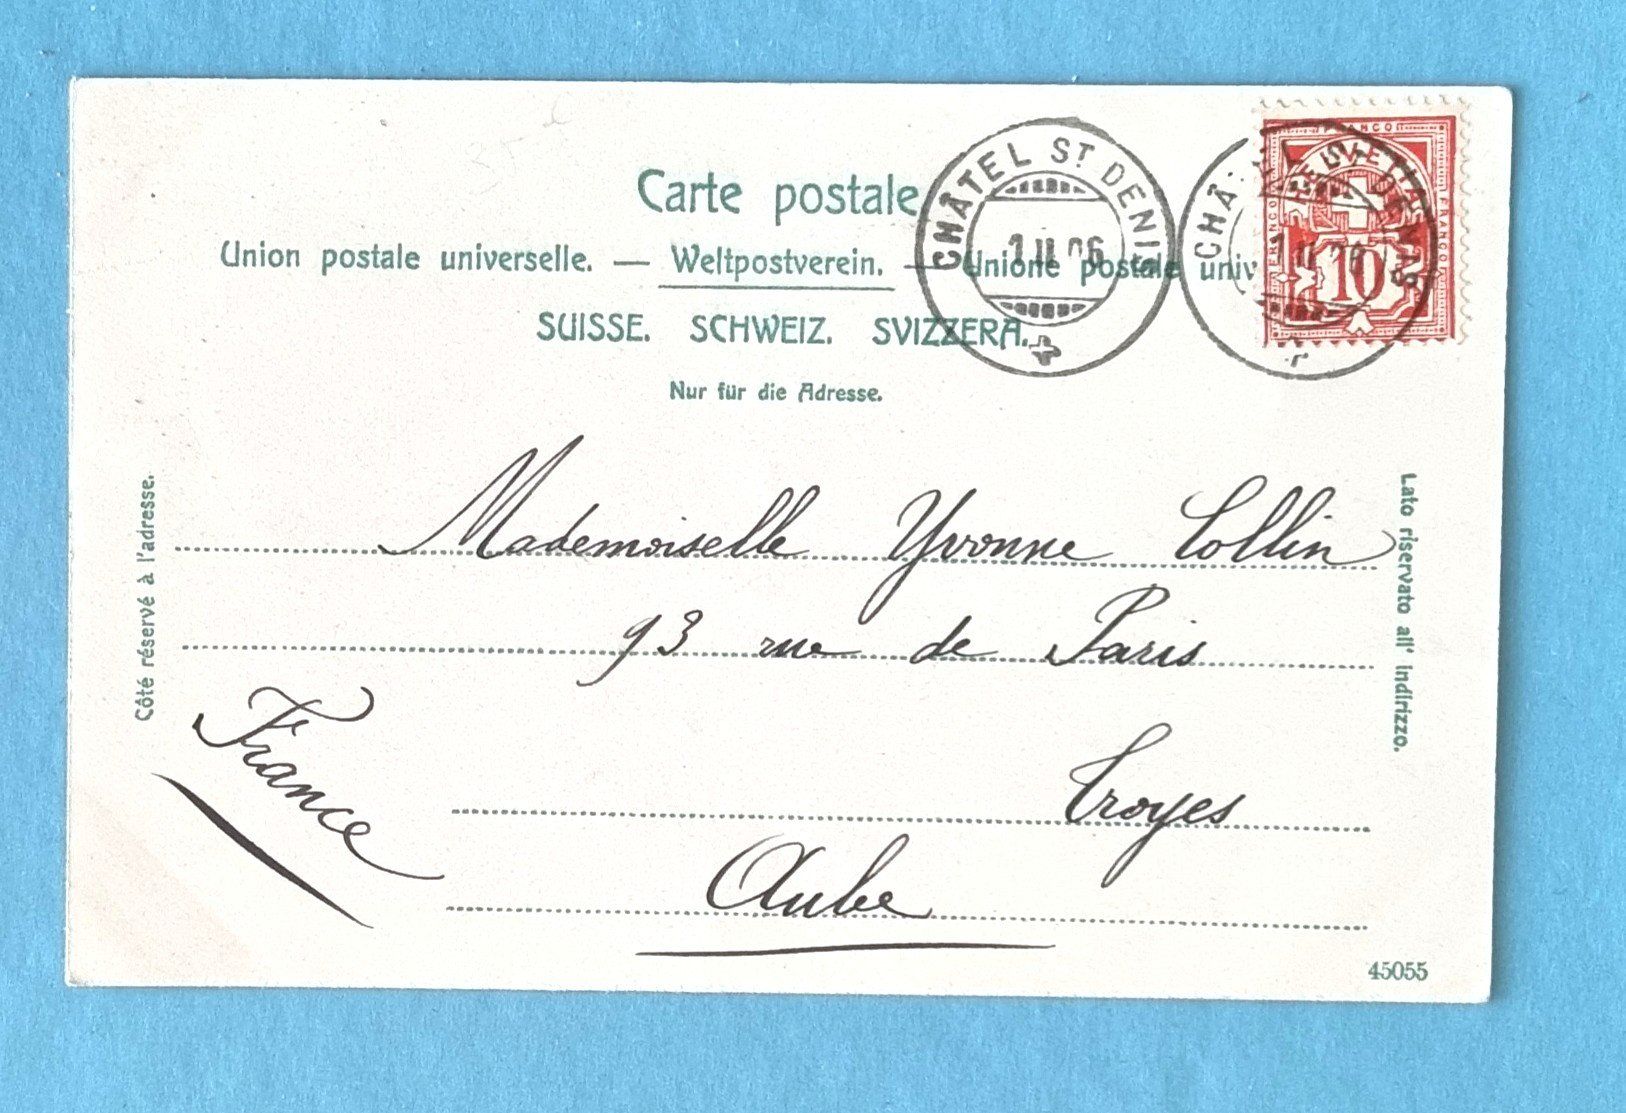 Carte postale
Union postale universelle. — Weltpostverein. — Unione postale univ
SUISSE. SCHWEIZ. SVIZZERA.
Nur für die Adresse.
CHÂTEL ST DENIS
1 II 06
CHÂTEL ST DENIS
1 II 06
FRANCO
FRANCO
FRANCO
HELVETIA
10
Côté réservé à l'adresse.
Lato riservato all' indirizzo.
Mademoiselle Yvonne Collin
93 rue de Paris
Troyes
Aube
France
45055